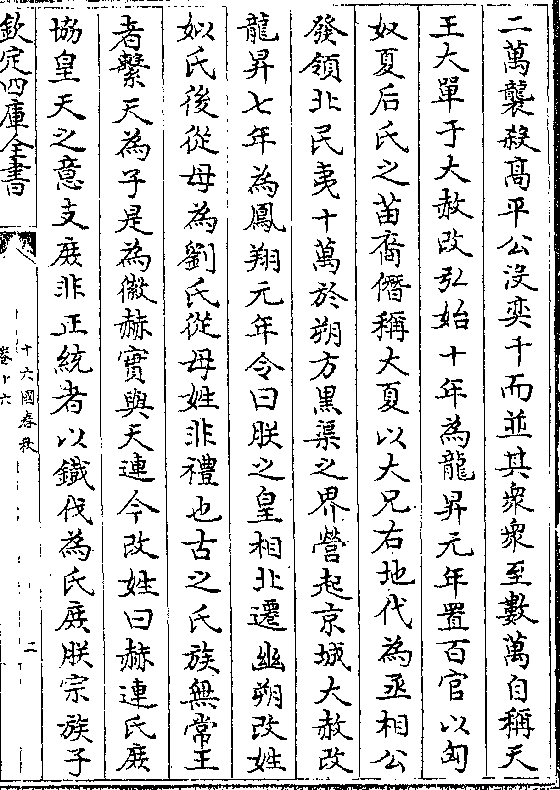 二萬襲殺高平公沒奕干而並其衆衆至數萬自稱天
王大單于大赦改弘始十年為龍昇元年置百官以匈
奴夏后氏之苗裔僭稱大夏以大兄右地代為丞相公
發領北民夷十萬於朔方黑渠之界營起京城大赦改
龍昇七年為鳳翔元年令曰朕之皇相北遷幽朔改姓
姒氏後從母為劉氏從母姓非禮也古之氏族無常王
者繫天為子是為徽赫實與天連今改姓曰赫連氏庶
協皇天之意支庶非正統者以鐡伐為氏庶朕宗族子
欽定四庫全書
十六國春秋
卷十六
二